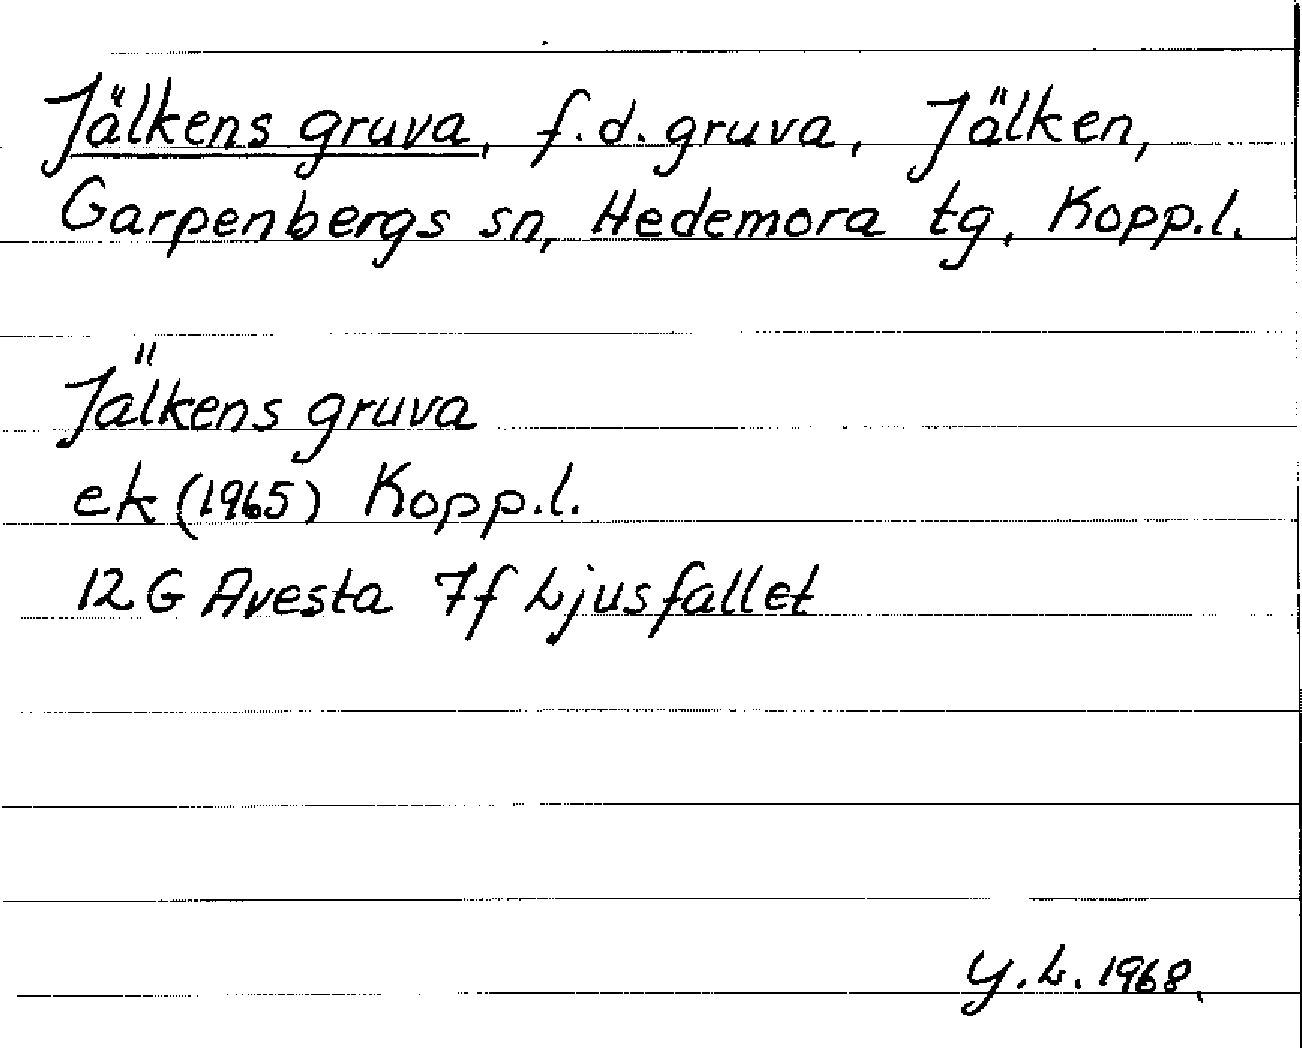 Jälkens gruva, f.d. gruva, Jälken,
Garpenbergs sn, Hedemora tg, Kopp.l.
Jälkens gruva
ek (1965) Kopp.l.
12G Avesta 7f Ljusfallet
Y.L. 1968.